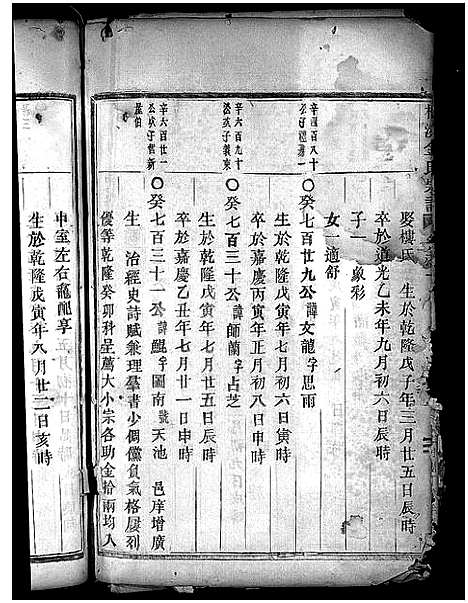 娶樓氏 生於乾隆戊子年三月廿五日辰時
卒於道光乙未年九月初六日辰時
子一 象彩
女一 適舒
辛四百八十
〇癸七百廿九公諱文龍字思雨
生於乾隆戊寅年七月初六日寅時
卒於嘉慶丙寅年正月初八日申時
辛六百九十
公次子義東
〇癸七百三十公諱師蘭字占芝
生於乾隆戊寅年七月廿五日辰時
卒於嘉慶乙丑年七月廿一日申時
辛六百廿一
公次子哲新
〇癸七百三十一公諱鯤字圖南號天池 邑庠增廣
生 治經史詩賦兼理羣書少倜儻負氣格屢列
優等乾隆癸卯科呈薦大小宗各助金拾兩均入
中室左右龕配享
生於乾隆戊寅年八月廿二日亥時